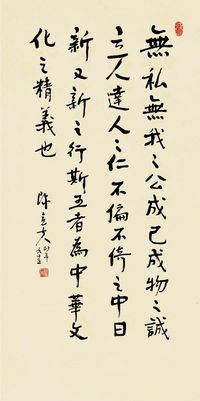 無私無我之公成己成物之誠
立人達人之仁不偏不倚之中日
新又新之行斯五者為中華文
化之精義也
陳立夫